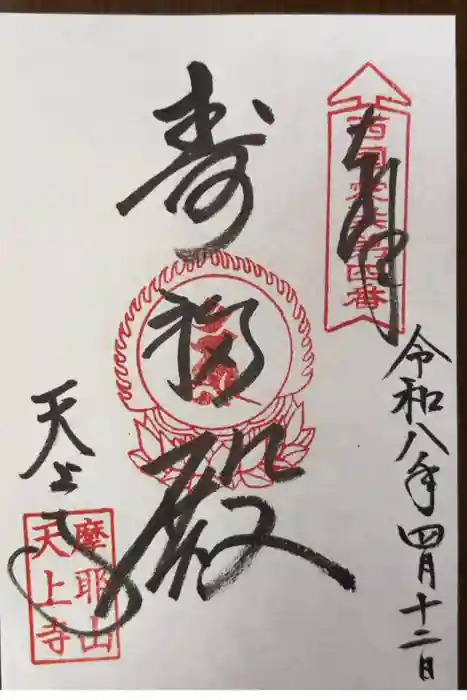 奉拝
西国愛染第四番
令和八年四月十二日
寿福殿
天上寺
摩耶山
天上寺